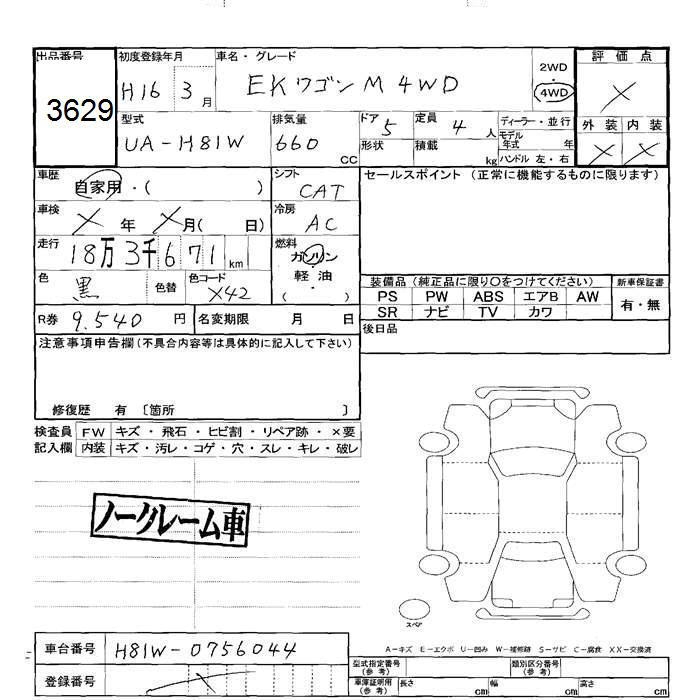 出品番号
3629
初度登録年月
H16 3月
車名・グレード
EKワゴン M 4WD
2WD
4WD
評価点
×
外装 内装
× ×
型式
UA-H81W
排気量
660 CC
ドア 5
形状
定員 4 人
積載 kg
ディーラー・並行
モデル年式 年
ハンドル 左・右
車歴
自家用・( )
シフト
CAT
セールスポイント (正常に機能するものに限ります)
車検
× 年 ×月( 日)
冷房
AC
走行
18万3千671 km
燃料
ガソリン
軽・油
( )
色
黒
色替
色コード
X42
装備品 (純正品に限り○をつけてください)
新車保証書
PS PW ABS エアB AW
有・無
SR ナビ TV カワ
R券 9.540 円
名変期限 月 日
後日品
注意事項申告欄 (不具合内容等は具体的に記入して下さい)
修復歴 有 〔箇所 〕
検査員
記入欄
FW キズ・飛石・ヒビ割・リペア跡・×要
内装 キズ・汚レ・コゲ・穴・スレ・キレ・破レ
ノークレーム車
スペア
A-キズ E-エクボ U-凹み W-補修跡 S-サビ C-腐食 XX-交換済
車台番号 H81W-0756044
登録番号 ×
型式指定番号
(参考)
類別区分番号
(参考)
車庫証明用
(参考)
長さ cm 幅 cm 高さ cm